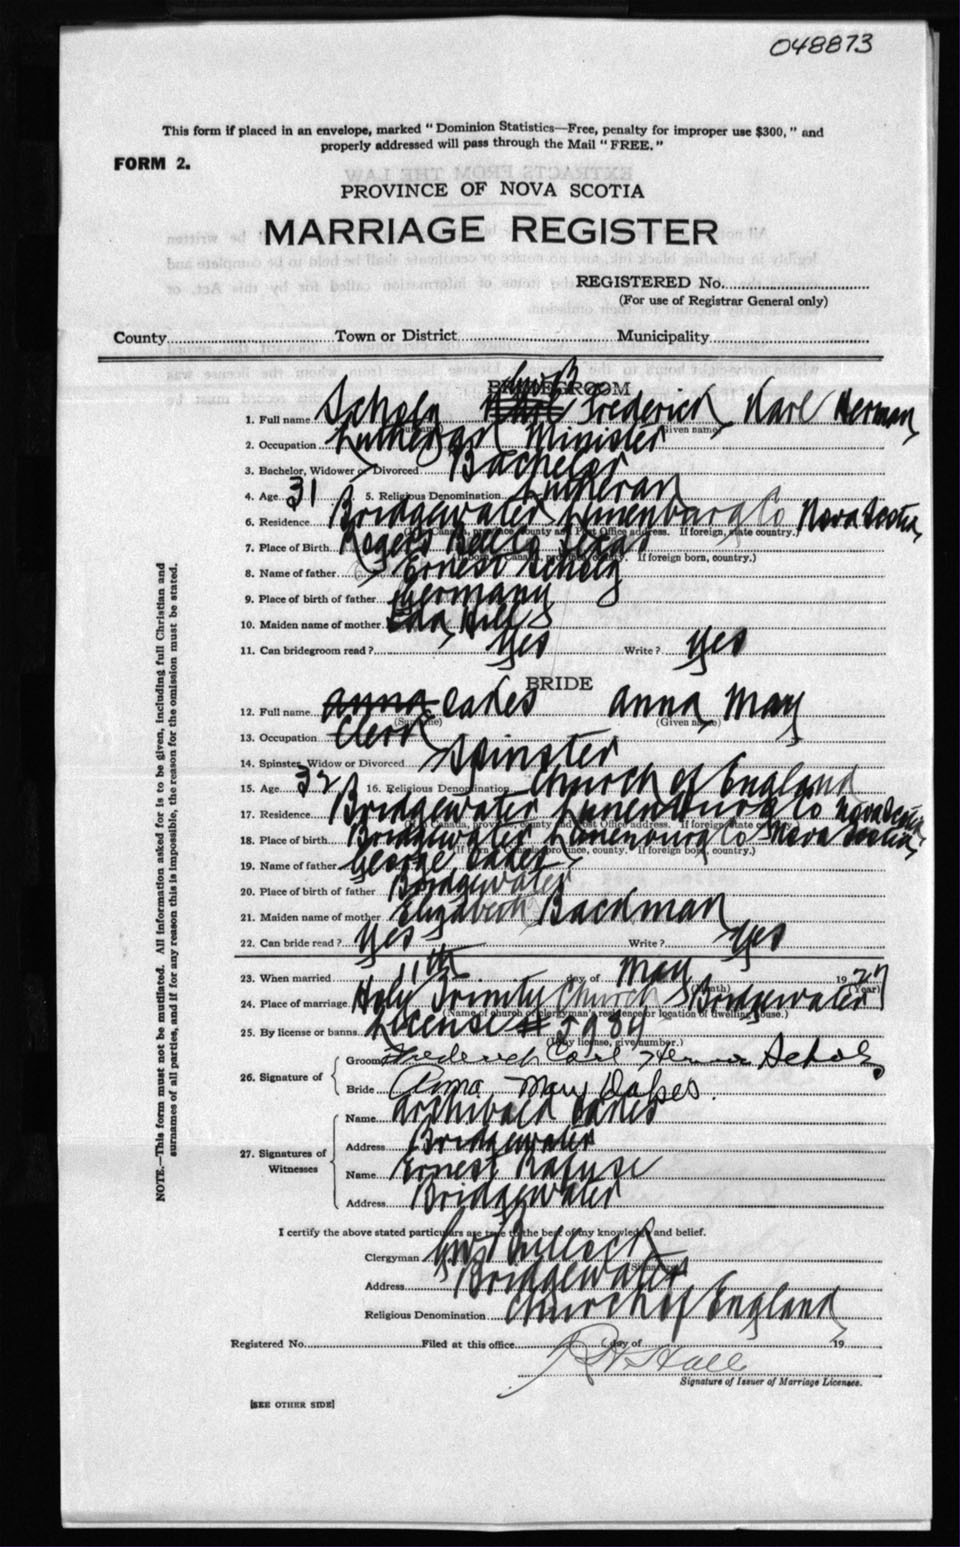 048873
This form if placed in an envelope, marked " Dominion Statistics—Free, penalty for improper use $300, " and
properly addressed will pass through the Mail " FREE. "
FORM 2.
PROVINCE OF NOVA SCOTIA
MARRIAGE REGISTER
REGISTERED No.
(For use of Registrar General only)
County Town or District Municipality
BRIDEGROOM
1. Full name Scholz Frederick Karl Herman
(Surname) (Given name)
2. Occupation Lutheran Minister
3. Bachelor, Widower or Divorced Bachelor
4. Age 31 5. Religious Denomination Lutheran
6. Residence Bridgewater Lunenburg Co Nova Scotia
(If Canada, province, county and Post Office address. If foreign, state country.)
7. Place of Birth Texas
(If born in Canada, province, county. If foreign born, country.)
8. Name of father Ernest Scholz
9. Place of birth of father Germany
10. Maiden name of mother Hill
11. Can bridegroom read ? Yes Write ? Yes
BRIDE
12. Full name Anna Oakes Anna May
(Surname) (Given name)
13. Occupation Clerk
14. Spinster, Widow or Divorced Spinster
15. Age 32 16. Religious Denomination Church of England
17. Residence Bridgewater Lunenburg Co Nova Scotia
(If Canada, province, county and Post Office address. If foreign state country.)
18. Place of birth Bridgewater Lunenburg Co Nova Scotia
(If born in Canada province, county. If foreign born, country.)
19. Name of father George Oakes
20. Place of birth of father Bridgewater
21. Maiden name of mother Elizabeth Bachman
22. Can bride read ? Yes Write ? Yes
23. When married 11th day of May 1927
(Month) (Year)
24. Place of marriage Holy Trinity Church Bridgewater
(Name of church or clergyman's residence or location of dwelling house.)
25. By license or banns License # 5989
(If by license, give number.)
26. Signature of
Groom Frederick Carl Herman Scholz
Bride Anna May Oakes.
27. Signatures of Witnesses
Name Archibald Oakes
Address Bridgewater
Name Ernest Rafuse
Address Bridgewater
I certify the above stated particulars are true to the best of my knowledge and belief.
Clergyman Bullock
(Signature)
Address Bridgewater
Religious Denomination Church of England
Registered No. Filed at this office day of 19
R H Hall
Signature of Issuer of Marriage Licenses.
[SEE OTHER SIDE]
NOTE.—This form must not be mutilated. All information asked for is to be given, including full Christian and
surnames of all parties, and if for any reason this is impossible, the reason for the omission must be stated.